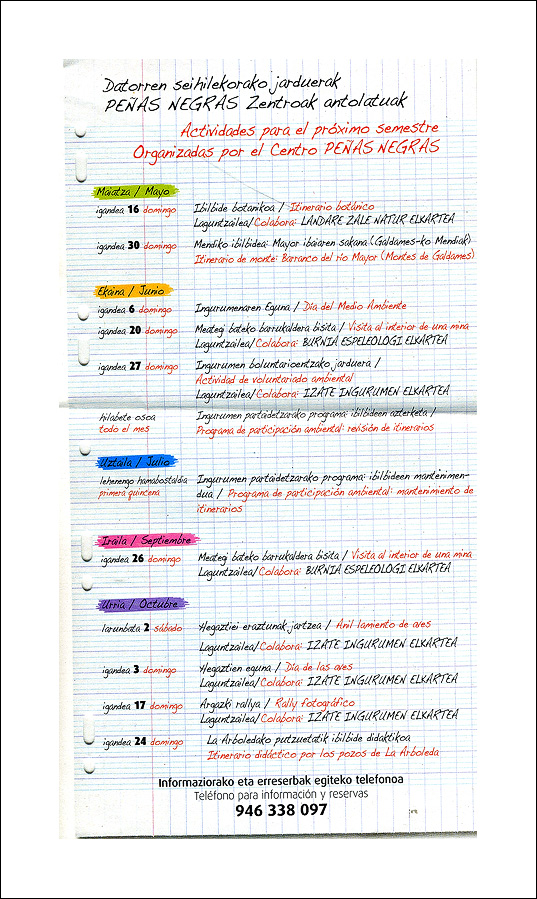 Datorren seihilekorako jarduerak
PEÑAS NEGRAS Zentroak antolatuak
Actividades para el próximo semestre
Organizadas por el Centro PEÑAS NEGRAS
Maiatza / Mayo
igandea 16 domingo Ibilbide botanikoa / Itinerario botánico
Laguntzailea/Colabora: LANDARE ZALE NATUR ELKARTEA
igandea 30 domingo Mendiko ibilbidea: Mayor ibaiaren sakana (Galdames-ko Mendiak)
Itinerario de monte: Barranco del río Mayor (Montes de Galdames)
Ekaina / Junio
igandea 6 domingo Ingurumenaren Eguna / Día del Medio Ambiente
igandea 20 domingo Meategi bateko barrukaldera bisita / Visita al interior de una mina
Laguntzailea/Colabora: BURNIA ESPELEOLOGI ELKARTEA
igandea 27 domingo Ingurumen boluntarioentzako jarduera /
Actividad de voluntariado ambiental
Laguntzailea/Colabora: IZATE INGURUMEN ELKARTEA
hilabete osoa Ingurumen partaidetzarako programa: ibilbideen azterketa /
todo el mes Programa de participación ambiental: revisión de itinerarios
Uztaila / Julio
lehenengo hamabostaldia Ingurumen partaidetzarako programa: ibilbideen mantenimen-
primera quincena dua / Programa de participación ambiental: mantenimiento de
itinerarios
Iraila / Septiembre
igandea 26 domingo Meategi bateko barrukaldera bisita / Visita al interior de una mina
Laguntzailea/Colabora: BURNIA ESPELEOLOGI ELKARTEA
Urria / Octubre
larunbata 2 sábado Hegaztiei eraztunak jartzea / Anillamiento de aves
Laguntzailea/Colabora: IZATE INGURUMEN ELKARTEA
igandea 3 domingo Hegaztien eguna / Día de las aves
Laguntzailea/Colabora: IZATE INGURUMEN ELKARTEA
igandea 17 domingo Argazki rallya / Rally fotográfico
Laguntzailea/Colabora: IZATE INGURUMEN ELKARTEA
igandea 24 domingo La Arboledako putzuetatik ibilbide didaktikoa
Itinerario didáctico por los pozos de La Arboleda
Informaziorako eta erreserbak egiteko telefonoa
Teléfono para información y reservas
946 338 097